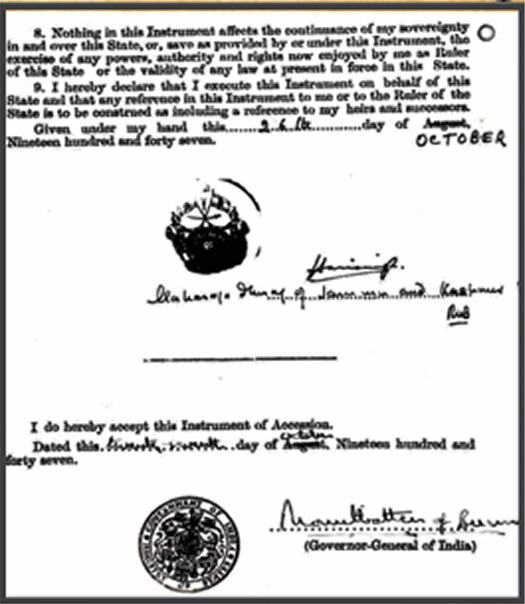 8. Nothing in this Instrument affects the continuance of my sovereignty
in and over this State, or, save as provided by or under this Instrument, the
exercise of any powers, authority and rights now enjoyed by me as Ruler
of this State or the validity of any law at present in force in this State.
9. I hereby declare that I execute this Instrument on behalf of this
State and that any reference in this Instrument to me or to the Ruler of the
State is to be construed as including a reference to my heirs and successors.
Given under my hand this........26th........day of August,
OCTOBER
Nineteen hundred and forty seven.
Harisingh.
Maharaja Dhiraj of Jammu and Kashmir
I do hereby accept this Instrument of Accession.
October
Dated this twenty seventh day of August, Nineteen hundred and
forty seven.
Mountbatten of Burma
(Governor-General of India)